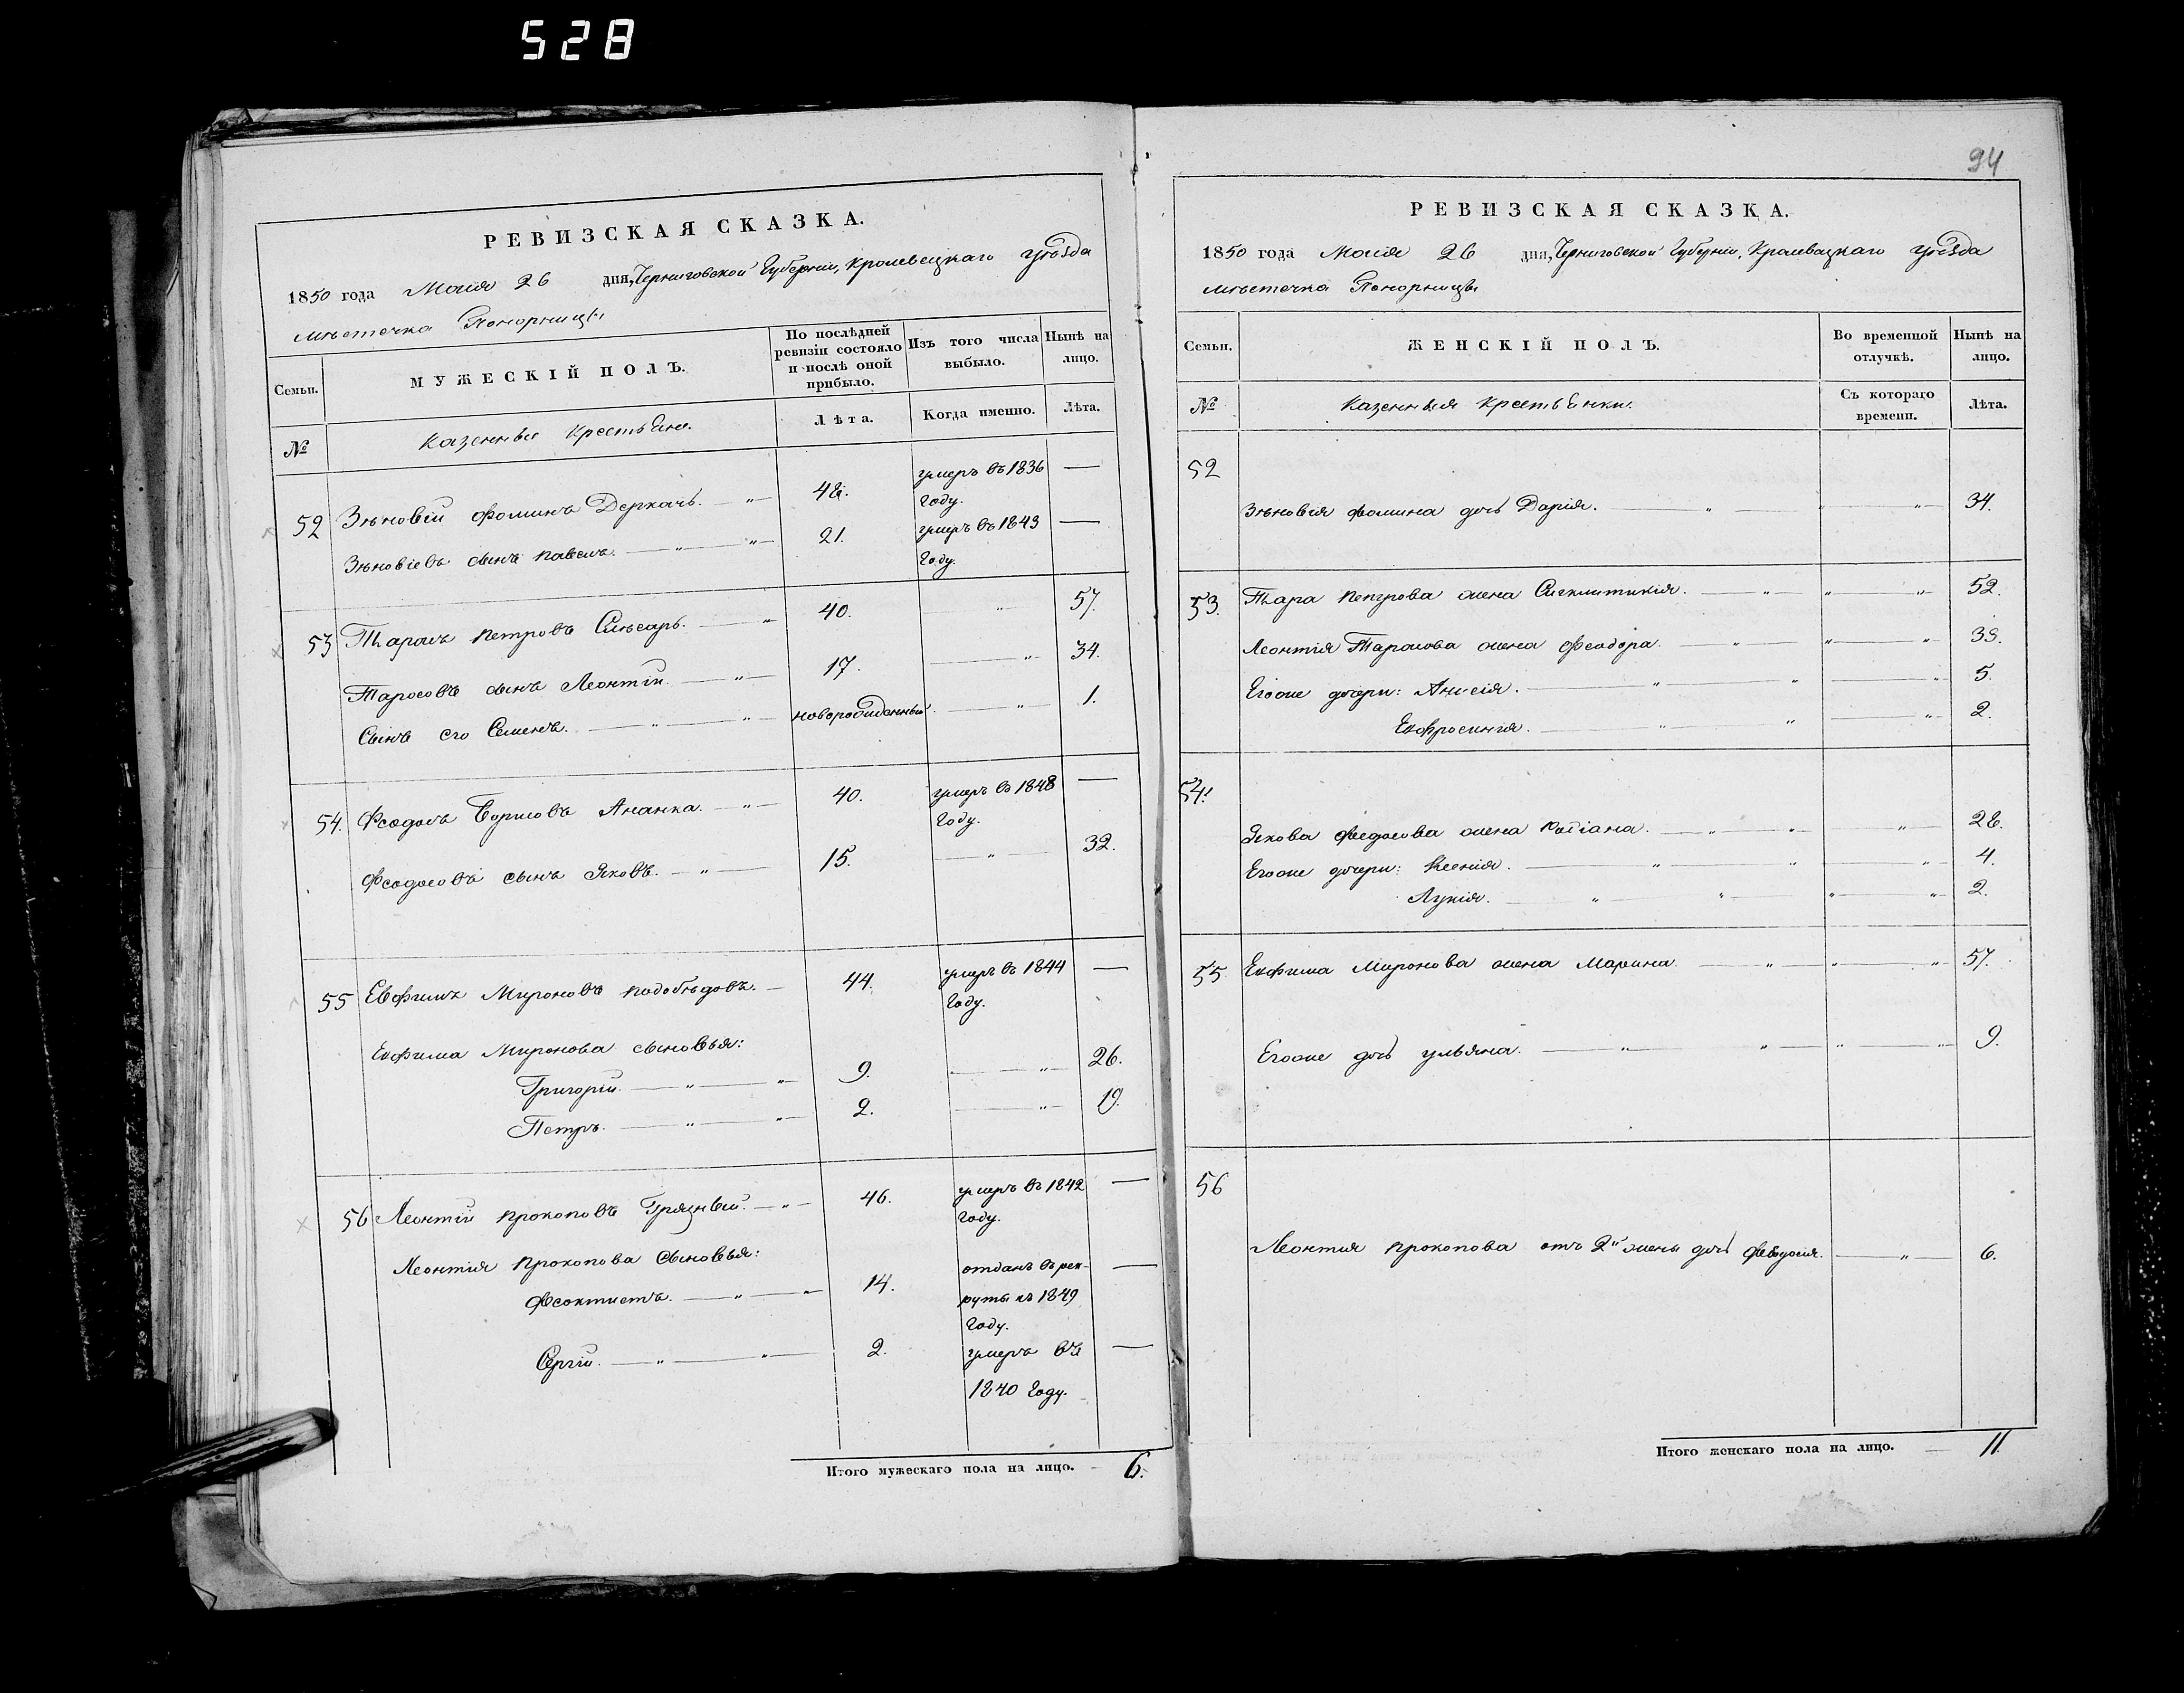 528
94
РЕВИЗСКАЯ СКАЗКА.
1850 года Маія 26 дня, Черниговской Губерніи, Кролевецкаго уѣзда
мѣстечка Понорницы
Семьи. МУЖЕСКІЙ ПОЛЪ. По послѣдней ревизіи состояло и послѣ оной прибыло. Изъ того числа выбыло. Нынѣ на лицо.
№ Казенные Крестьяне. Лѣта. Когда именно. Лѣта.
52 Зѣновій Фоминъ Деркачь. — „ — 48. умеръ въ 1836 году. —
Зѣновіевъ сынъ Павелъ. — „ — „ — 21. умеръ въ 1843 году. —
53 Тарасъ Петровъ Слѣсарь. — „ 40. „ 57.
Тарасовъ сынъ Леонтій. — „ — 17. — „ 34.
Сынъ его Семенъ. — „ — „ — новорожденный. — „ — 1.
54. Феодосъ Борисовъ Ананка. — „ — 40. умеръ въ 1848 году. —
Феодосовъ сынъ Яковъ. — „ — 15. — „ — 32.
55 Евфимъ Мироновъ Подобѣдовъ. — 44. умеръ въ 1844 году. —
Евфима Миронова сыновья:
Григорій. — „ — „ — 9. — „ — 26.
Петръ. — „ — „ — 2. — „ — 19.
56 Леонтій Прокоповъ Грязный. — „ — 46. умеръ въ 1842 году. —
Леонтія Прокопова Сыновья:
Феоктистъ. — „ — „ — 14. отданъ въ рекруты въ 1849 году. —
Сергій. — „ — „ — 2. умеръ въ 1840 году. —
Итого мужескаго пола на лицо. — 6.
РЕВИЗСКАЯ СКАЗКА.
1850 года Маія 26 дня, Черниговской Губерніи, Кролевецкаго уѣзда
мѣстечка Понорницы
Семьи. ЖЕНСКІЙ ПОЛЪ. Во временной отлучкѣ. Нынѣ на лицо.
№ Казенныя Крестьянки. Съ котораго времени. Лѣта.
52
Зѣновія Фомина дочь Дарія. — „ — „ — 34.
53. Тараса Петрова жена Сигклитикія. — „ — „ — „ — 52.
Леонтія Тарасова жена Феодора. — „ — „ — „ — 39.
Егоже дочери: Анисія. — „ — „ — „ 5.
Евфросинія. — „ — „ — „ — 2.
54.
Якова Федосова жена Татіана. — „ — „ — „ — 28.
Егоже дочери: Ксенія. — „ — „ — „ — 4.
Лукія. — „ — „ — „ — „ — 2.
55 Евфима Миронова жена Марина. „ — „ — „ — 57.
Егоже дочь Ульяна. — „ — „ — „ — „ — 9.
56
Леонтия Прокопова отъ 2й жены дочь Феодосія. — „ — 6.
Итого женскаго пола на лицо. — 11.